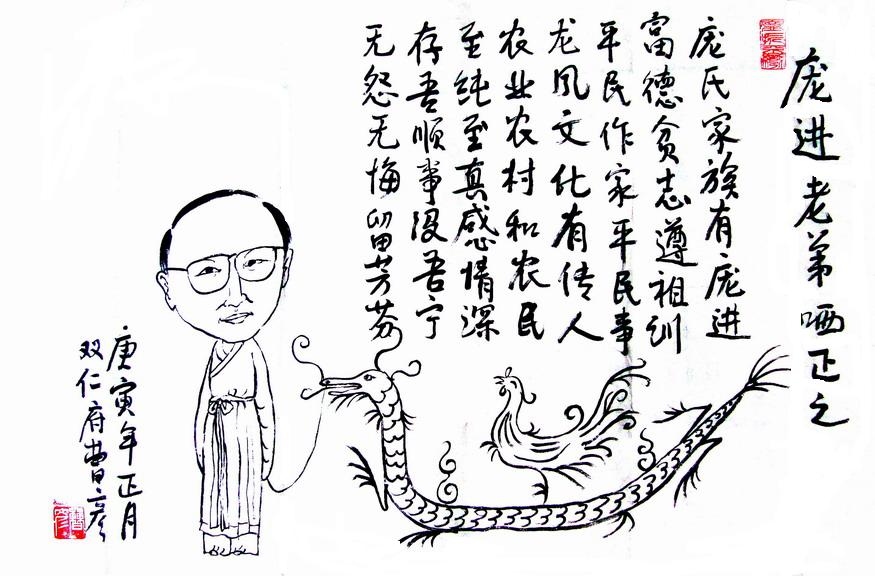 庞进老弟哂正之
庞氏家族有庞进
富德贫志遵祖训
平民作家平民事
龙凤文化有传人
农业农村和农民
至纯至真感情深
存吾顺事没吾宁
无怨无悔留芳芬
庚寅年正月
双仁府曹彦